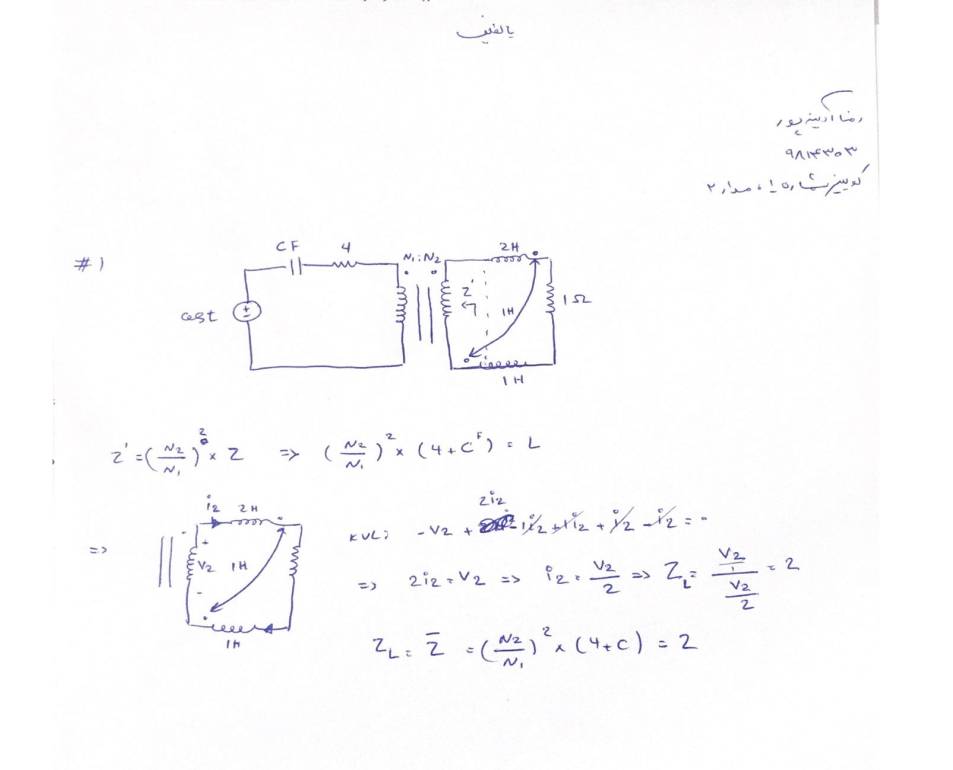 یا لطیف
رضا آدینه پور
۹۸۱۴۳۰۳
کوییز شماره ۱۰، مدار ۲
#1
CF 4 N₁:N₂ 2H
cost Z' 1H 1Ω
1H
Z' = (N₂/N₁)² × Z => (N₂/N₁)² × (4 + C^F) = L
i₂ 2H
=> V₂ 1H
+
-
1H
KVL: -V₂ + 2i₂ - 1i₂ + 1i₂ + i₂ - i₂ = 0
=> 2i₂ = V₂ => i₂ = V₂/2 => Z_L = (V₂/1)/(V₂/2) = 2
Z_L = Z̄ = (N₂/N₁)² × (4 + C) = 2